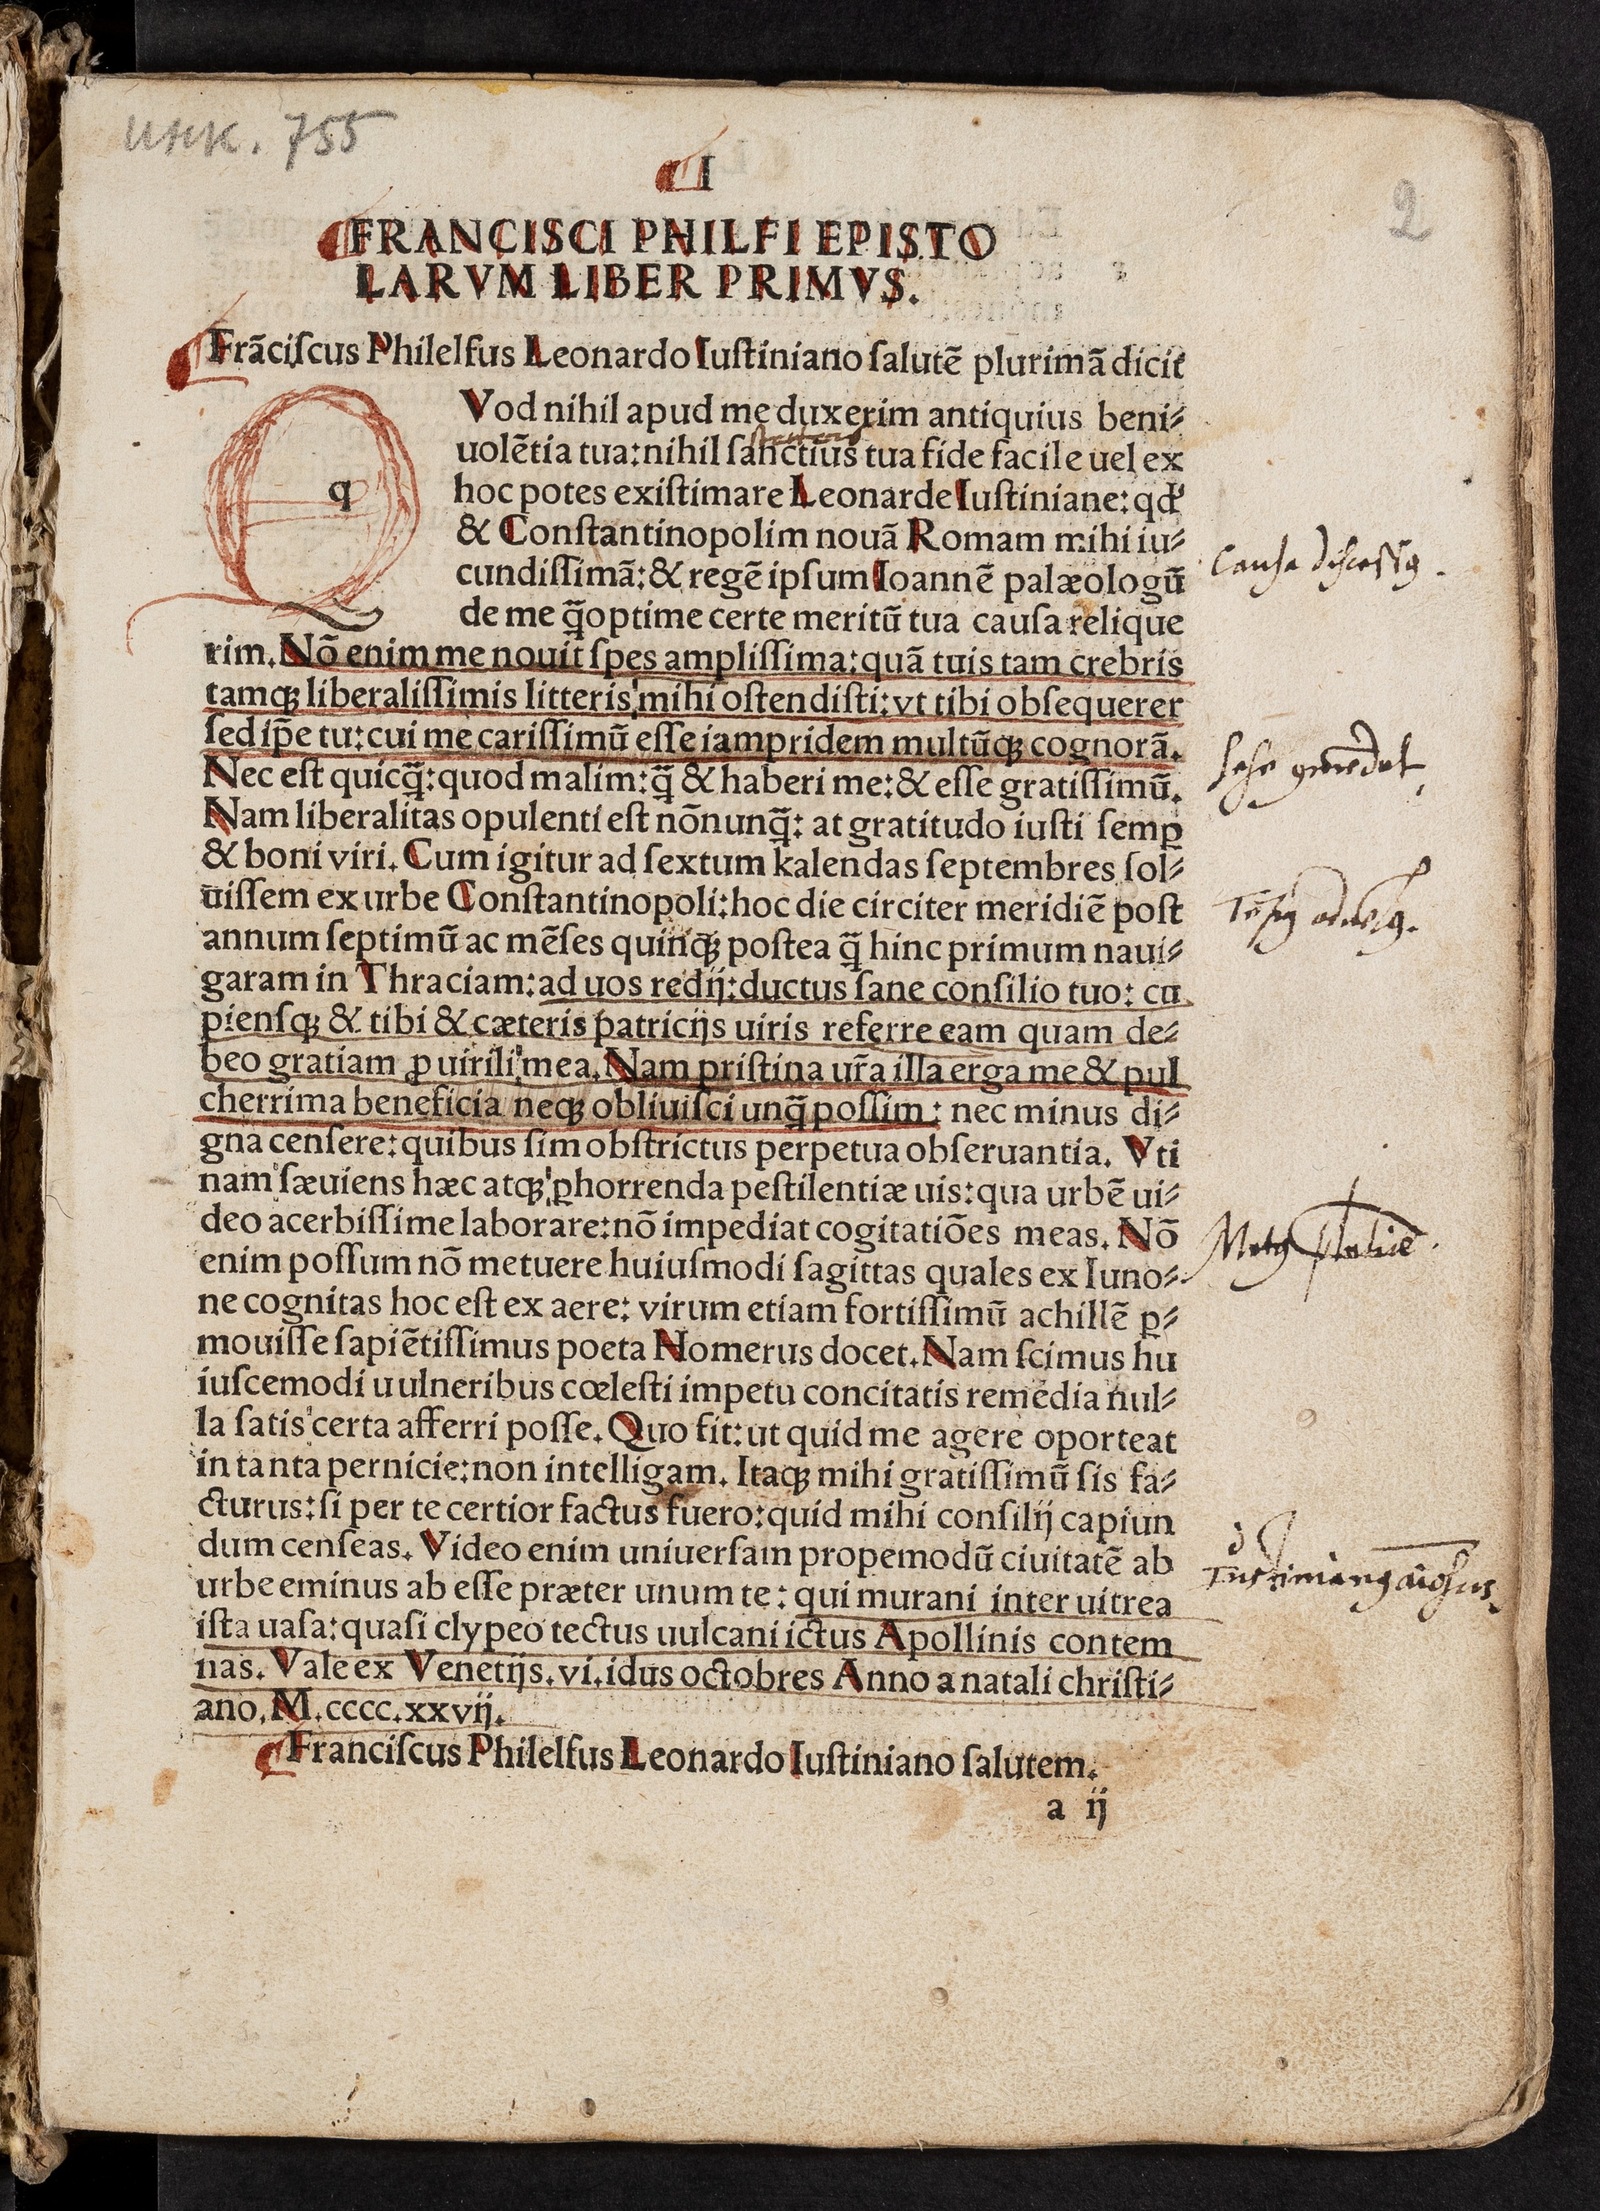 инк. 755
I
2
FRANCISCI PHILFI EPISTO
LARVM LIBER PRIMVS.
Frāciſcus Philelfus Leonardo Iuſtiniano ſalutē plurimā dicit
q
Vod nihil apud me duxerim antiquius beni⸗
uolētia tua: nihil ſanctius tua fide facile uel ex
hoc potes exiſtimare Leonarde Iuſtiniane: qd'
& Conſtantinopolim nouā Romam mihi iu⸗
cundiſſimā: & regē ipſum Ioannē palæologū
Cauſa diſceſſꝰ.
de me q̄optime certe meritū tua cauſa relique
rim. Nō enim me nouit ſpes ampliſſima: quā tuis tam crebris
tamqꝫ liberaliſſimis litteris mihi oſtendiſti: vt tibi obſequerer
ſed ip̄e tu: cui me cariſſimū eſſe iampridem multūqꝫ cognorā.
Nec eſt quicq̄: quod malim: q̄ & haberi me: & eſſe gratiſſimū.
Nam liberalitas opulenti eſt nōnunq̄: at gratitudo iuſti ſemꝑ
& boni viri. Cum igitur ad ſextum kalendas ſeptembres ſol⸗
uiſſem ex urbe Conſtantinopoli: hoc die circiter meridiē poſt
annum ſeptimū ac mēſes quinqꝫ poſtea q̄ hinc primum naui⸗
garam in Thraciam: ad uos redij: ductus ſane conſilio tuo: cu
pienſqꝫ & tibi & cæteris patricijs uiris referre eam quam de⸗
beo gratiam ꝓ uirili mea. Nam priſtina ur̄a illa erga me & pul
cherrima beneficia neqꝫ obliuiſci unq̄ poſſim: nec minus di⸗
gna cenſere: quibus ſim obſtrictus perpetua obſeruantia. Vti
nam ſæuiens hæc atqꝫ ꝑhorrenda peſtilentiæ uis: qua urbē ui⸗
deo acerbiſſime laborare: nō impediat cogitatiōes meas. Nō
enim poſſum nō metuere huiuſmodi ſagittas quales ex Iuno⸗
ne cognitas hoc eſt ex aere: virum etiam fortiſſimū achillē ꝑ⸗
mouiſſe ſapiētiſſimus poeta Nomerus docet. Nam ſcimus hu
iuſcemodi uulneribus cœleſti impetu concitatis remedia nul⸗
la ſatis certa afferri poſſe. Quo fit: ut quid me agere oporteat
in tanta pernicie: non intelligam. Itaqꝫ mihi gratiſſimū ſis fa⸗
cturus: ſi per te certior factus fuero: quid mihi conſilij capiun
dum cenſeas. Video enim uniuerſam propemodū ciuitatē ab
urbe eminus ab eſſe præter unum te: qui murani inter uitrea
iſta uaſa: quaſi clypeo tectus uulcani ictus Apollinis contem
nas. Vale ex Venetijs. vi. idus octobres Anno a natali chriſti⸗
ano. M.cccc.xxvij.
Franciſcus Philelfus Leonardo Iuſtiniano ſalutem.
a ij